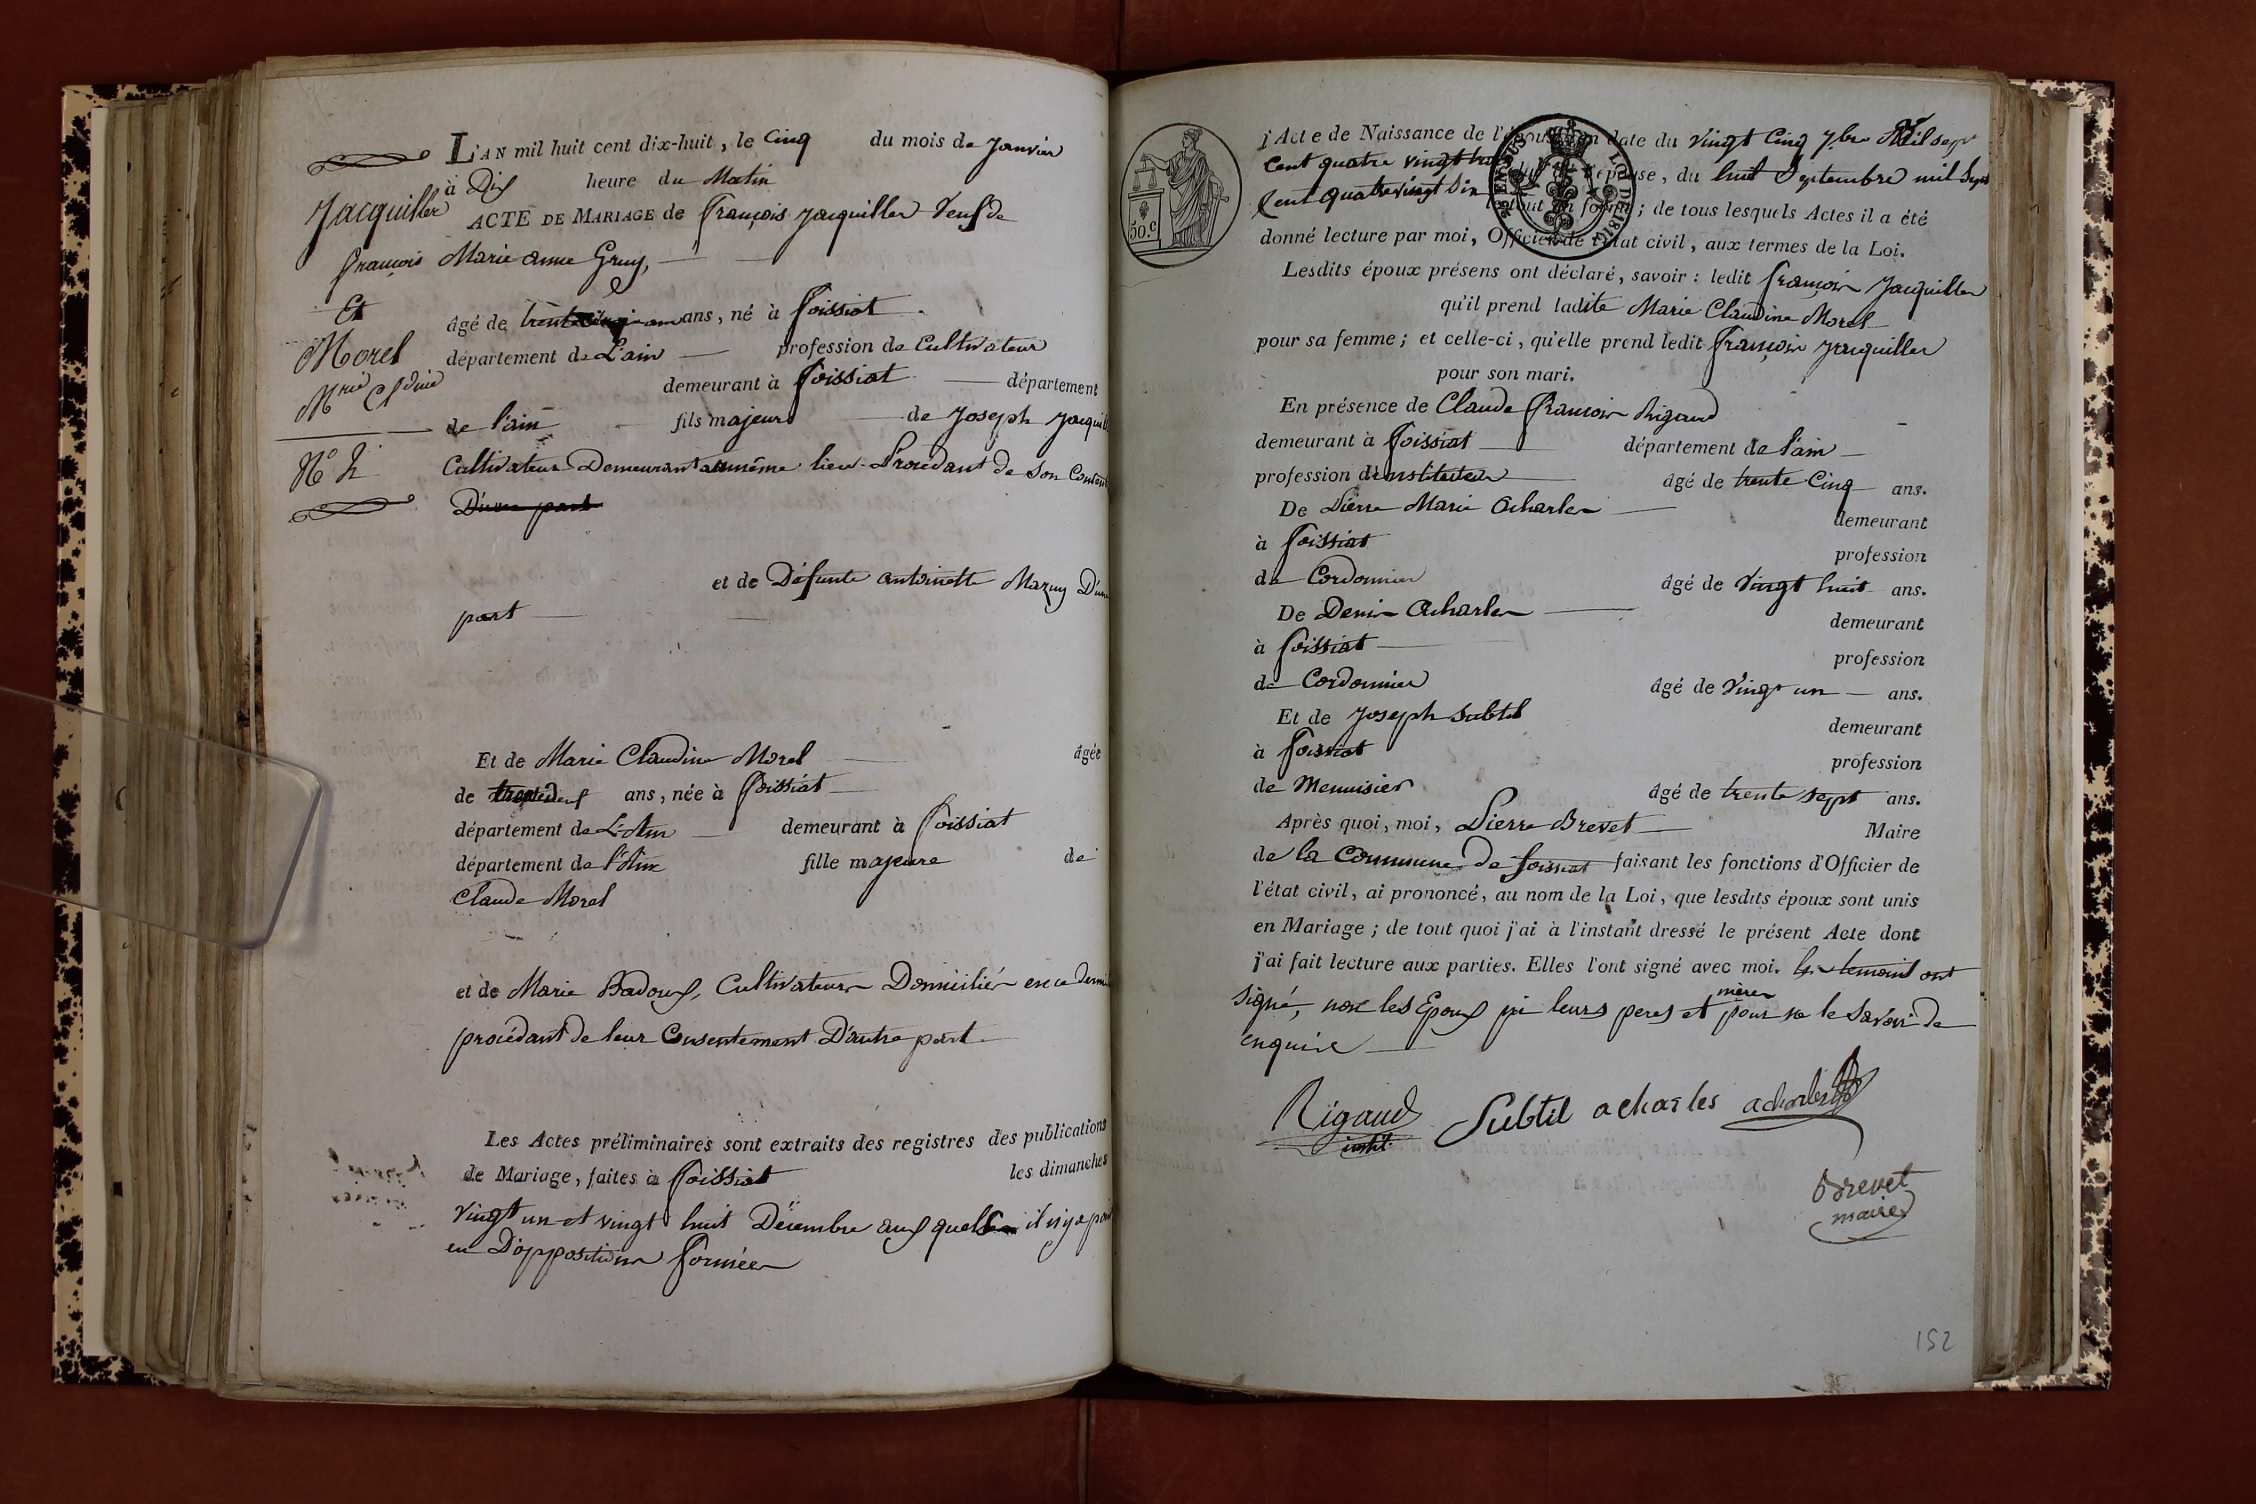 L'AN mil huit cent dix-huit, le Cinq du mois de Janvier
à Dix heure du Matin
ACTE DE MARIAGE de françois Jacquiller Veuf de
Marie anne Gruy,
Jacquiller
françois
Et
Morel
Mrie Cldine
No 2
âgé de ans, né à foissiat
département de L'ain profession de Cultivateur
demeurant à foissiat département
de l'ain fils majeur de Joseph
Cultivateur Demeurant au même lieu Procédant de son
D'une part
et de Défunte antoinette Mazuy
part
Et de Marie Claudine Morel âgée
de ans, née à foissiat
département de L'Ain demeurant à foissiat
département de l'Ain fille majeure de
Claude Morel
et de Marie Badoux, Cultivateurs Domiciliés en ce
procédant de leur Consentement D'autre part
Les Actes préliminaires sont extraits des registres des publications
de Mariage, faites à foissiat les dimanches
Vingt un et vingt huit Décembre aux quels il n'y a
eu D'oppositions formées
50.c
1816
j Acte de Naissance de l'époux en date du Vingt Cinq 7bre Mil sept
Cent quatre vingt
l'épouse, du huit Septembre mil Sept
Cent quatrevingt Six
le tout en forme; de tous lesquels Actes il a été
donné lecture par moi, Officier de l'état civil, aux termes de la Loi.
Lesdits époux présens ont déclaré, savoir: ledit françois Jacquiller
qu'il prend ladite Marie Claudine Morel
pour sa femme; et celle-ci, qu'elle prend ledit françois Jacquiller
pour son mari.
En présence de Claude françois Rigaud
demeurant à foissiat département de l'ain
profession d'instituteur âgé de trente Cinq ans.
De Pierre Marie Acharles demeurant
à foissiat profession
de Cordonnier âgé de Vingt huit ans.
De Denis Acharles demeurant
à foissiat profession
de Cordonnier âgé de Vingt un ans.
Et de Joseph Subtil demeurant
à foissiat profession
de Menuisier âgé de trente sept ans.
Après quoi, moi, Pierre Brevet Maire
de la Commune de foissiat faisant les fonctions d'Officier de
l'état civil, ai prononcé, au nom de la Loi, que lesdits époux sont unis
en Mariage; de tout quoi j'ai à l'instant dressé le présent Acte dont
j'ai fait lecture aux parties. Elles l'ont signé avec moi. les temoins ont
signé, non les Epoux ni leurs peres et meres pour ne le savoir de
enquis
Rigaud
instit.
Subtil acharles acharles
Brevet
maire
152